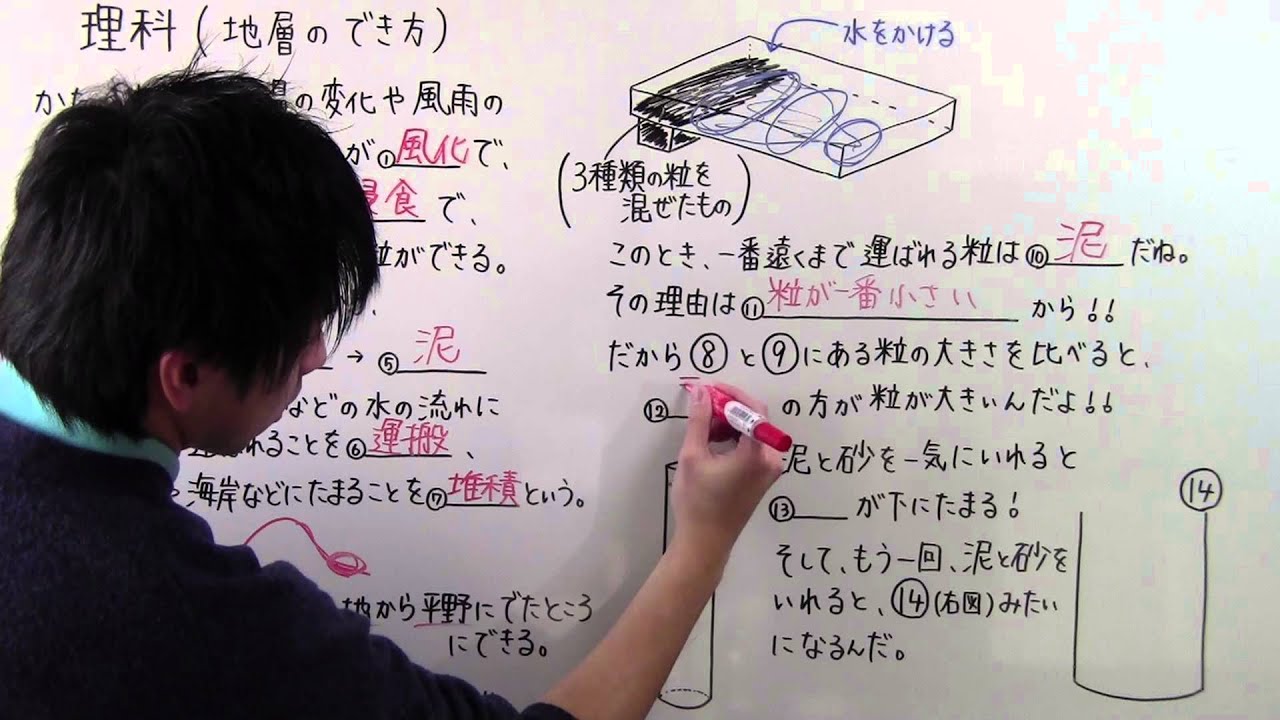 理科(地層のでき方)
の変化や風雨の
が①風化で、
食で、
粒ができる。
→ ⑤泥
などの水の流れに
れることを⑥運搬、
海岸などにたまることを⑦堆積という。
地から平野にでたところ
にできる。
水をかける
(3種類の粒を
混ぜたもの)
このとき、一番遠くまで運ばれる粒は⑩泥だね。
その理由は⑪粒が一番小さいから!!
だから⑧と⑨にある粒の大きさを比べると、
⑫の方が粒が大きいんだよ!!
泥と砂を一気にいれると
⑬が下にたまる!
そして、もう一回、泥と砂を
いれると、⑭(右図)みたい
になるんだ。
⑭